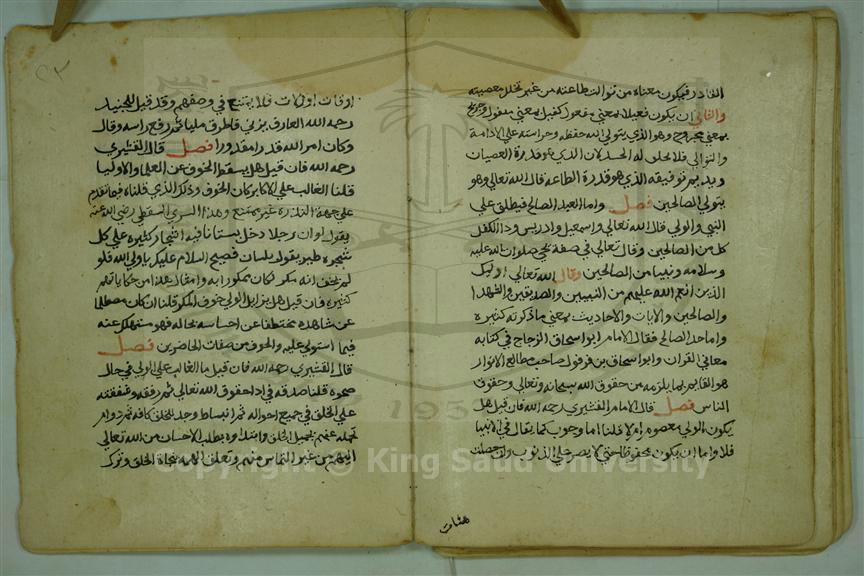 القادر فيكون معناه من توالت طاعته من غير تخلل معصيته
والثاني ان يكون فعيلا بمعنى مفعول كقتيل بمعنى مقتول وجريح
بمعنى مجروح وهو الذي يتولى الله حفظه وحراسته على الادامة
والتوالي فلا يخلق له الخذلان الذي هو قدرة العصيان
ويديم توفيقه الذي هو قدرة الطاعه قال الله تعالى وهو
يتولى الصالحين فصل واما العبد الصالح فيطلق على
النبي والولي قال الله تعالى واسمعيل وادريس وذا الكفل
كل من الصالحين وقال تعالى في صفة يحيى صلوات الله عليه
وسلامه ونبيا من الصالحين وقال الله تعالى اوليك
الذين انعم الله عليهم من النبيين والصديقين والشهدا
والصالحين والايات والاحاديث بمعنى ما ذكرته كثيرة
واما حد الصالح فقال الامام ابو اسحاق الزجاج في كتابه
معاني القران وابو اسحاق بن قرقول صاحب مطالع الانوار
هو القايم بما يلزمه من حقوق الله سبحانه وتعالى وحقوق
الناس فصل قال الامام القشيري رحمه الله فان قيل هل
يكون الولي معصوم ام لا قلنا اما وجوب كما يقال في الانبيا
فلا واما ان يكون محفوظا حتى لا يصر على الذنوب وان حصلت
هنات
اوقات او زلات فلا يمتنع في وصفهم وقد قيل للجنيد
رحمه الله العارف يزني فاطرق مليا ثم رفع راسه وقال
وكان امر الله قدرا مقدورا فصل قال القشيري
رحمه الله فان قيل هل يسقط الخوف عن العلما والاوليا
قلنا الغالب على الاكابر كان الخوف وذكر الذي قلناه فيما تقدم
على جهة الندرة غير ممتنع وهذا السري السقطي رضي الله عنه
يقول لو ان رجلا دخل بستانا فيه اشجار كثيرة على كل
شجره طير يقول بلسان فصيح السلام عليك يا ولي الله فلو
لم يخف انه مكر لكان ممكورا به وامثال هذا من حكاياتهم
كثيره فان قيل هل يزايل الولي خوف المكر قلنا ان كان مصطلما
عن شاهده مختطفا عن احساسه بحاله فهو مستهلك عنه
فيما استولى عليه والخوف من صفات الحاضرين فصل
قال القشيري رحمه الله فان قيل ما الغالب على الولي في حال
صحوه قلنا صدقه في ادا حقوق الله تعالى ثم رفقه وشفقته
على الخلق في جميع احواله ثم انبساط رحمته للخلق كافه ثم دوام
تحمله عنهم بجميل الخلق وابتداوه بطلب الاحسان من الله تعالى
اليهم من غير التماس منهم وتعلق الهمه بنجاة الخلق وترك
Copyright © King Saud University